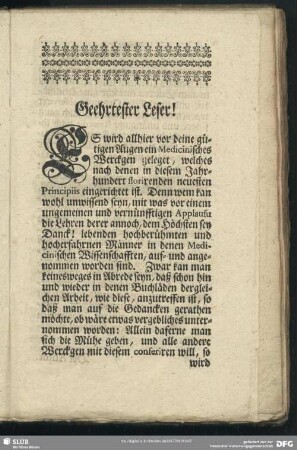 Geehrtester Leser!
ES wird allhier vor deine gü-
tigen Augen ein Medicinisches
Werckgen geleget, welches
nach denen in diesem Jahr-
hundert florirenden neuesten
Principiis eingerichtet ist. Denn wem kan
wohl unwissend seyn, mit was vor einem
ungemeinen und vernünfftigen Applausu
die Lehren derer annoch, dem Höchsten sey
Danck! lebenden hochberühmten und
hocherfahrnen Männer in denen Medi-
cinischen Wissenschafften, auf- und ange-
nommen worden sind. Zwar kan man
keinesweges in Abrede seyn, daß schon hin
und wieder in denen Buchläden derglei-
chen Arbeit, wie diese, anzutreffen ist, so
daß man auf die Gedancken gerathen
möchte, ob wäre etwas vergebliches unter-
nommen worden: Allein daferne man
sich die Mühe geben, und alle andere
Werckgen mit diesem conferiren will, so
wird
SLUB